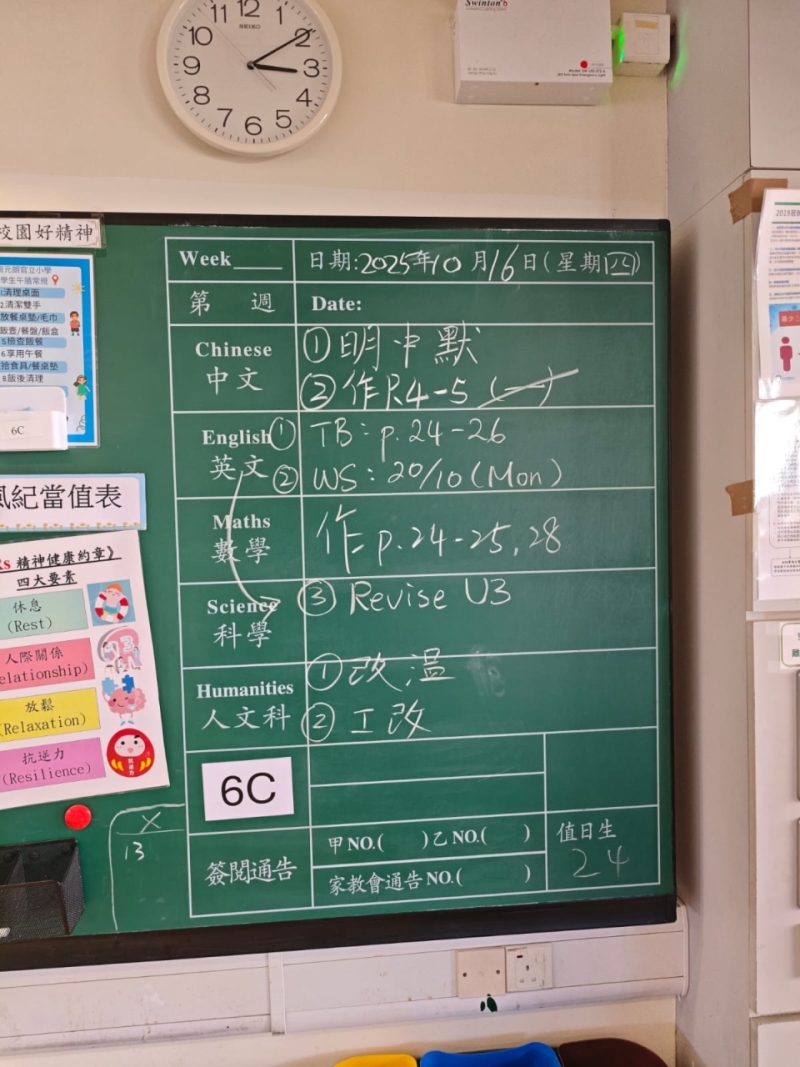 11 12 1
10 2
9 3
8 4
7 6 5
SEIKO
Swinton
校園好精神
清理桌面
清潔雙手
放餐桌墊/毛巾
飯壺/餐盤/飯盒
5檢查飯餐
6.享用午餐
拾食具/餐桌墊
8.飯後清理
6C
風紀當值表
精神健康約章》
四大要素
休息
(Rest)
人際關係
elationship)
放鬆
(Relaxation)
抗逆力
(Resilience)
Week____ 日期:2025年10月16日(星期四)
第 週 Date:
Chinese 中文 ①明中默
②作P.4-5 (一)
English 英文 ① TB: p.24-26
② WS: 20/10 (Mon)
Maths 數學 作 p.24-25, 28
Science 科學 ③ Revise U3
Humanities 人文科 ①改溫
② 工改
6C
簽閱通告 甲NO.( )乙NO.( )
家教會通告NO.( )
值日生
24
X
13
2019